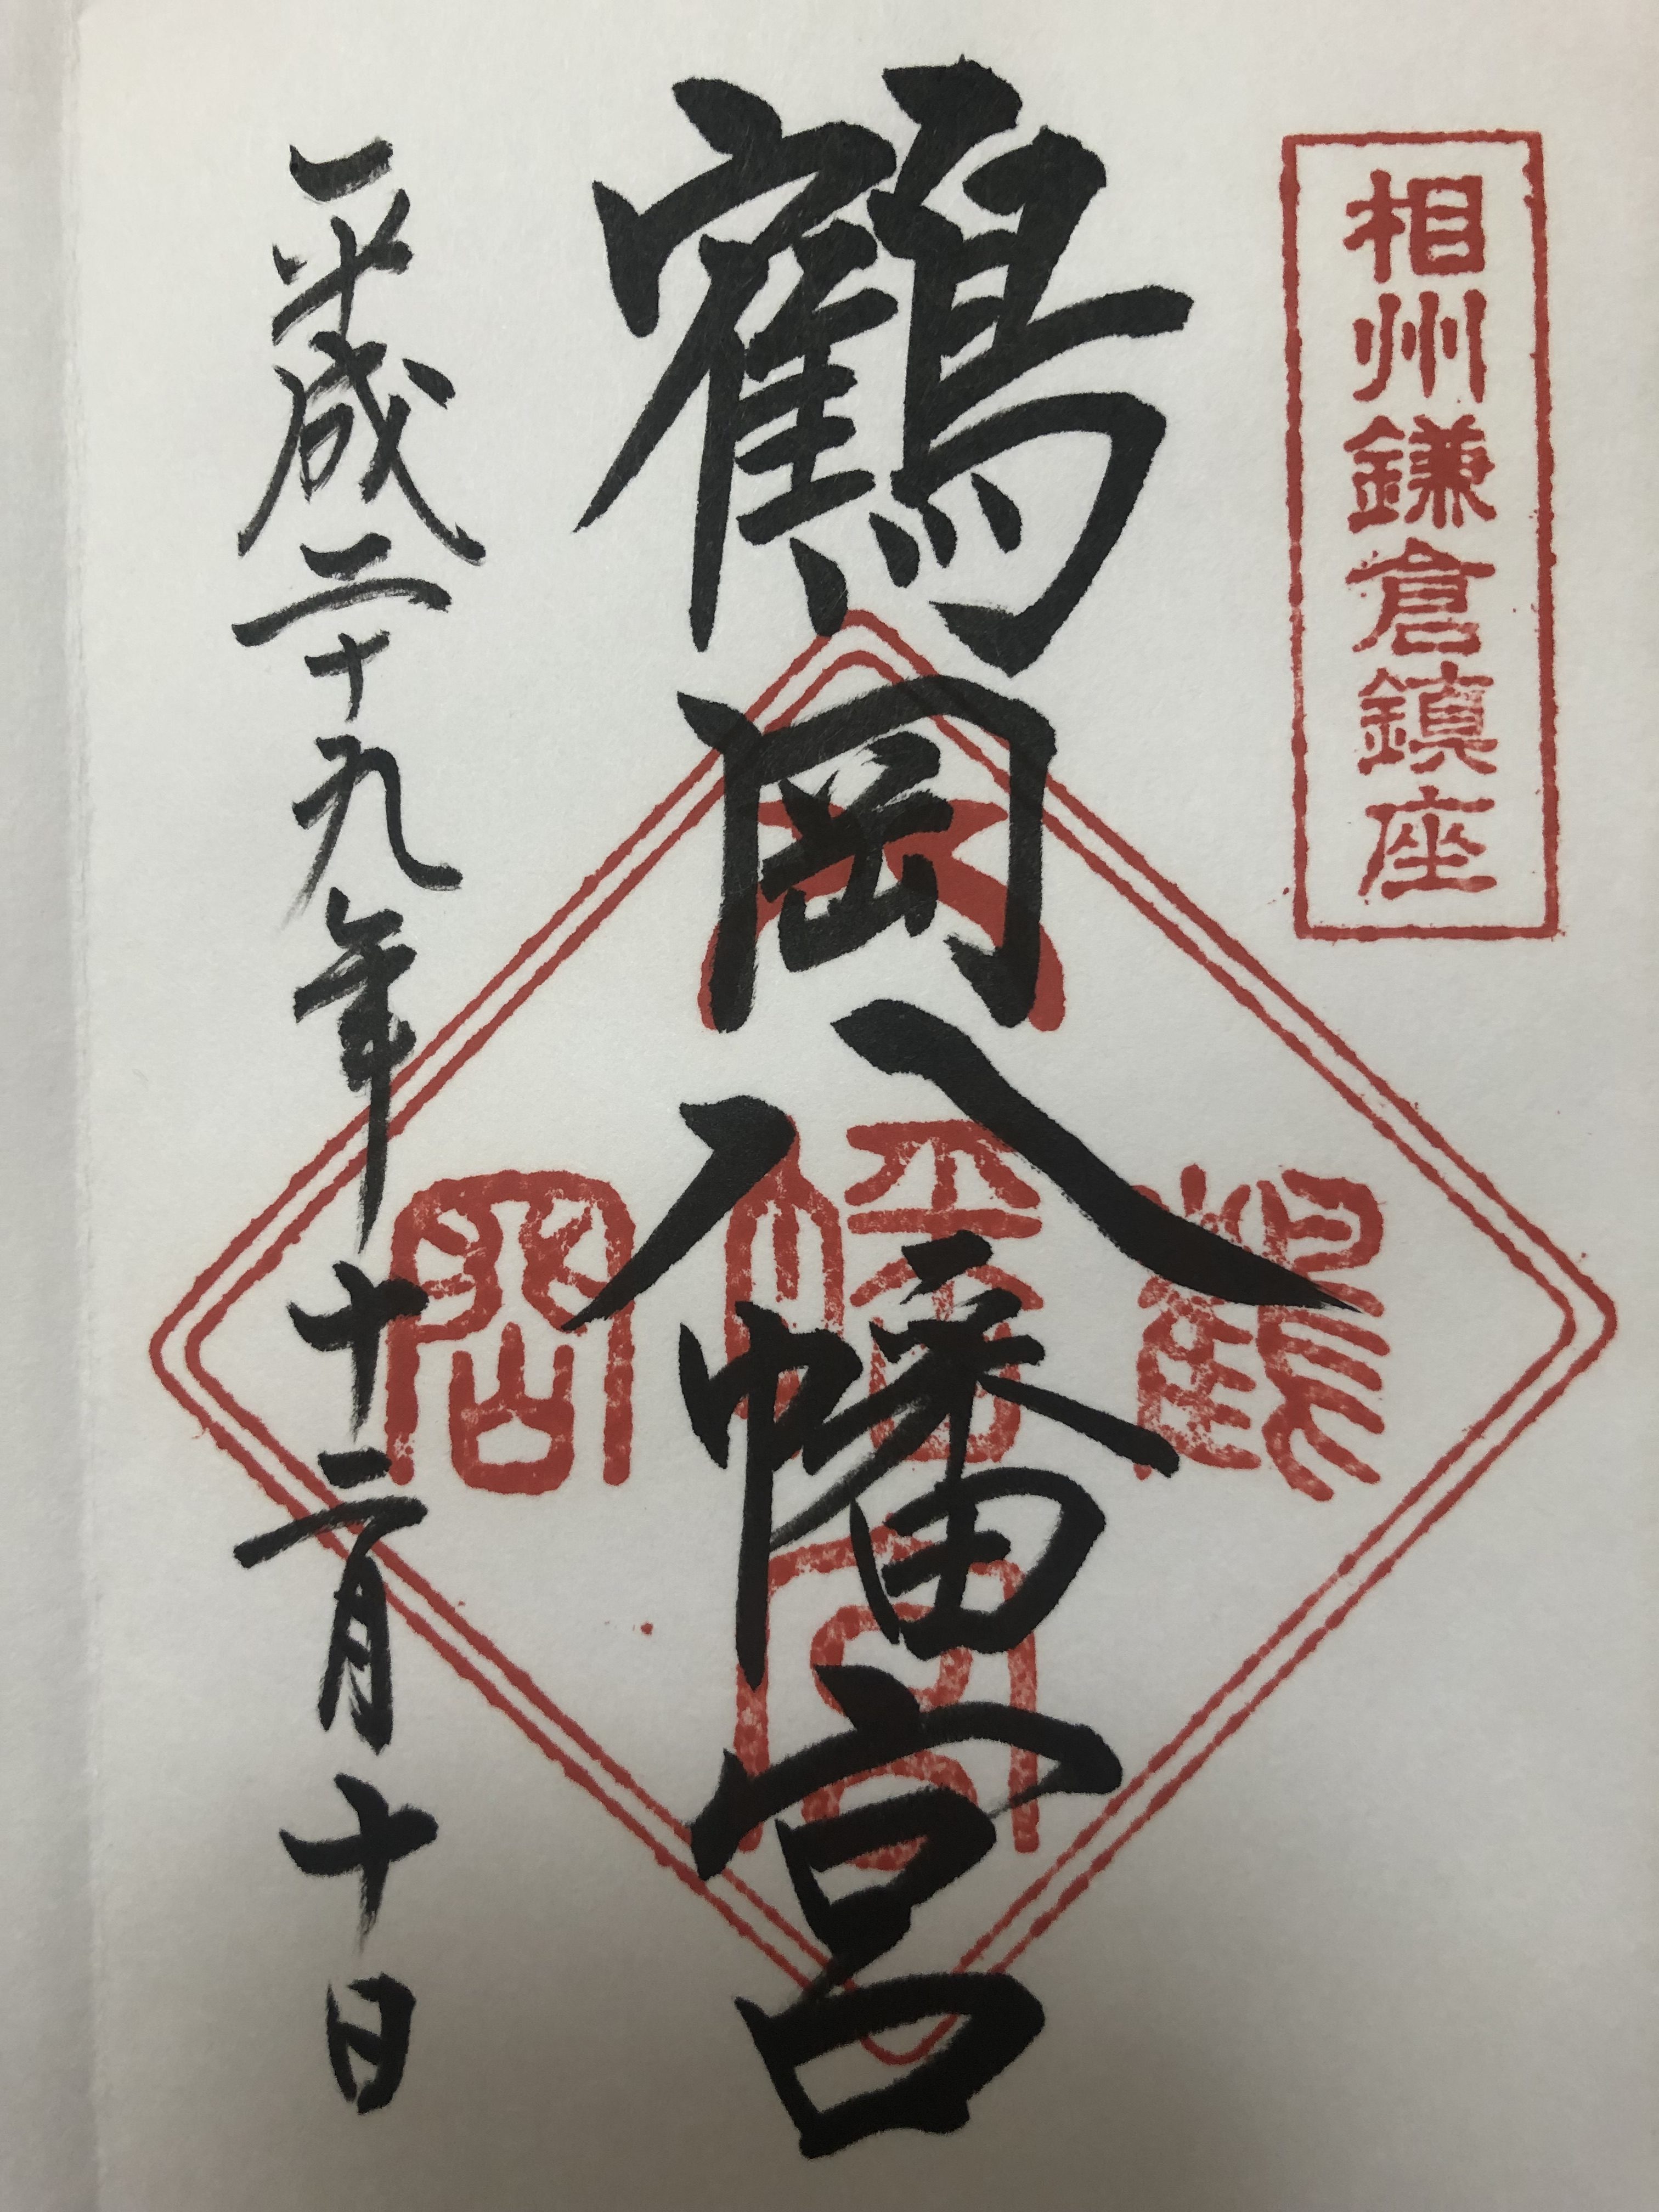 相州鎌倉鎮座
鶴岡八幡宮
平成二十九年十二月十日
鶴
八幡宮
岡